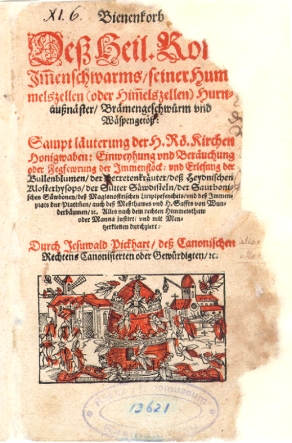 XI. 6.
Bienenkorb
Deß Heil. Rö
Im̃enschwarms / seiner Hum
melszellen (oder Him̃elszellen) Hurn-
außnäster / Brämengeschwürm vnd
Wäspengetöß:
Sampt läuterung der H. Rö. Kirchen
Honigwaben: Einweyhung vnd Beräuchung
oder Fegfewrung der Immenstöck: vnd Erlesung der
Bullenblumen / der Decretenkräuter / deß Heydnischen
Klosterhysops / der
Säwdisteln / der Saurboni-
schen
deß Magisnostrischen
vnd deß Immen-
platts der Plattisten / auch deß Meßthawes vnd H. Saffts von Wun-
derbäumen / ꝛc. Alles nach dem rechten Himmelsthaw
oder Manna justirt / vnd mit Men-
gerkletten durchziert:
Durch Jesuwald Pickhart / deß Canonischen
Rechtens Canonisierten oder Gewürdigten / ꝛc.
13621